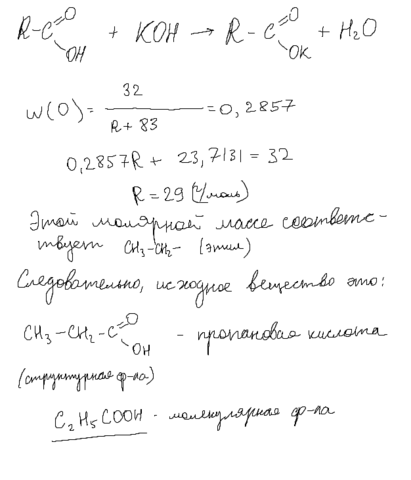 R-C=O OH + KOH → R-C=O OK + H₂O
w(O) = 32 / (R + 83) = 0,2857
0,2857R + 23,7131 = 32
R = 29 (г/моль)
Этой молярной массе соответс-
твует CH₃-CH₂- (этил)
Следовательно, исходное вещество это:
CH₃-CH₂-C=O OH - пропановая кислота
(структурная ф-ла)
C₂H₅COOH - молекулярная ф-ла